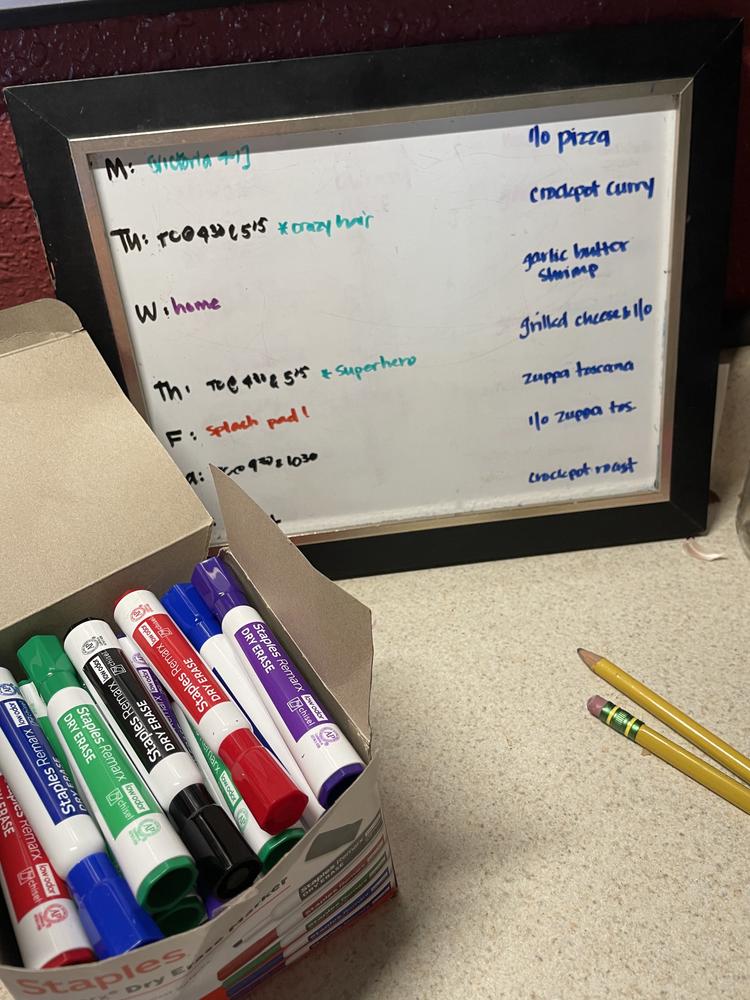 M: [Victoria 4-1]
l/o pizza
crockpot curry
Th: TC@430 & 515 *crazy hair
garlic butter
shrimp
W: home
grilled cheese & l/o
Th: TC@ 430 & 515 *superhero
zuppa toscana
F: splash pad!
l/o zuppa tos.
930 & 1030
crockpot roast
Staples Remarx
DRY ERASE
low odor
chisel
AP
Staples Remarx
DRY ERASE
low odor
chisel
AP
Staples Remarx
DRY ERASE
low odor
chisel
Staples Remarx
DRY ERASE
low odor
chisel
AP
Staples Remarx
DRY ERASE
low odor
Remarx
ERASE
low odor
chisel
AP
Staples Remarx
DRY ERASE
Staples
Dry Erase Marker